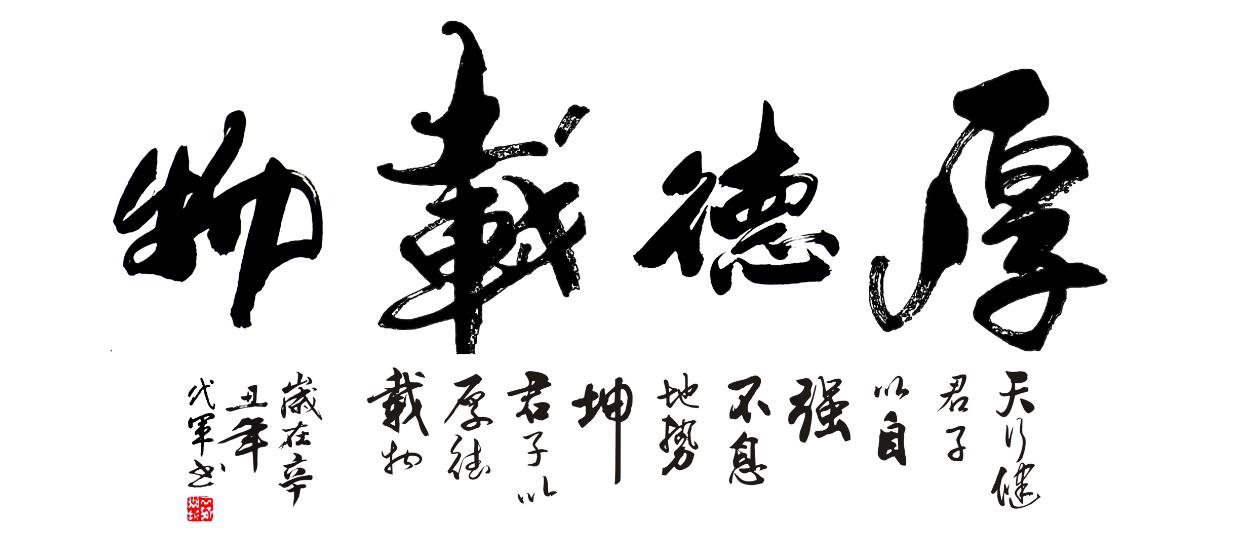 厚德載物
天行健
君子
以自
强
不息
地勢
坤
君子以
厚德
載物
歲在辛
丑年
代軍书